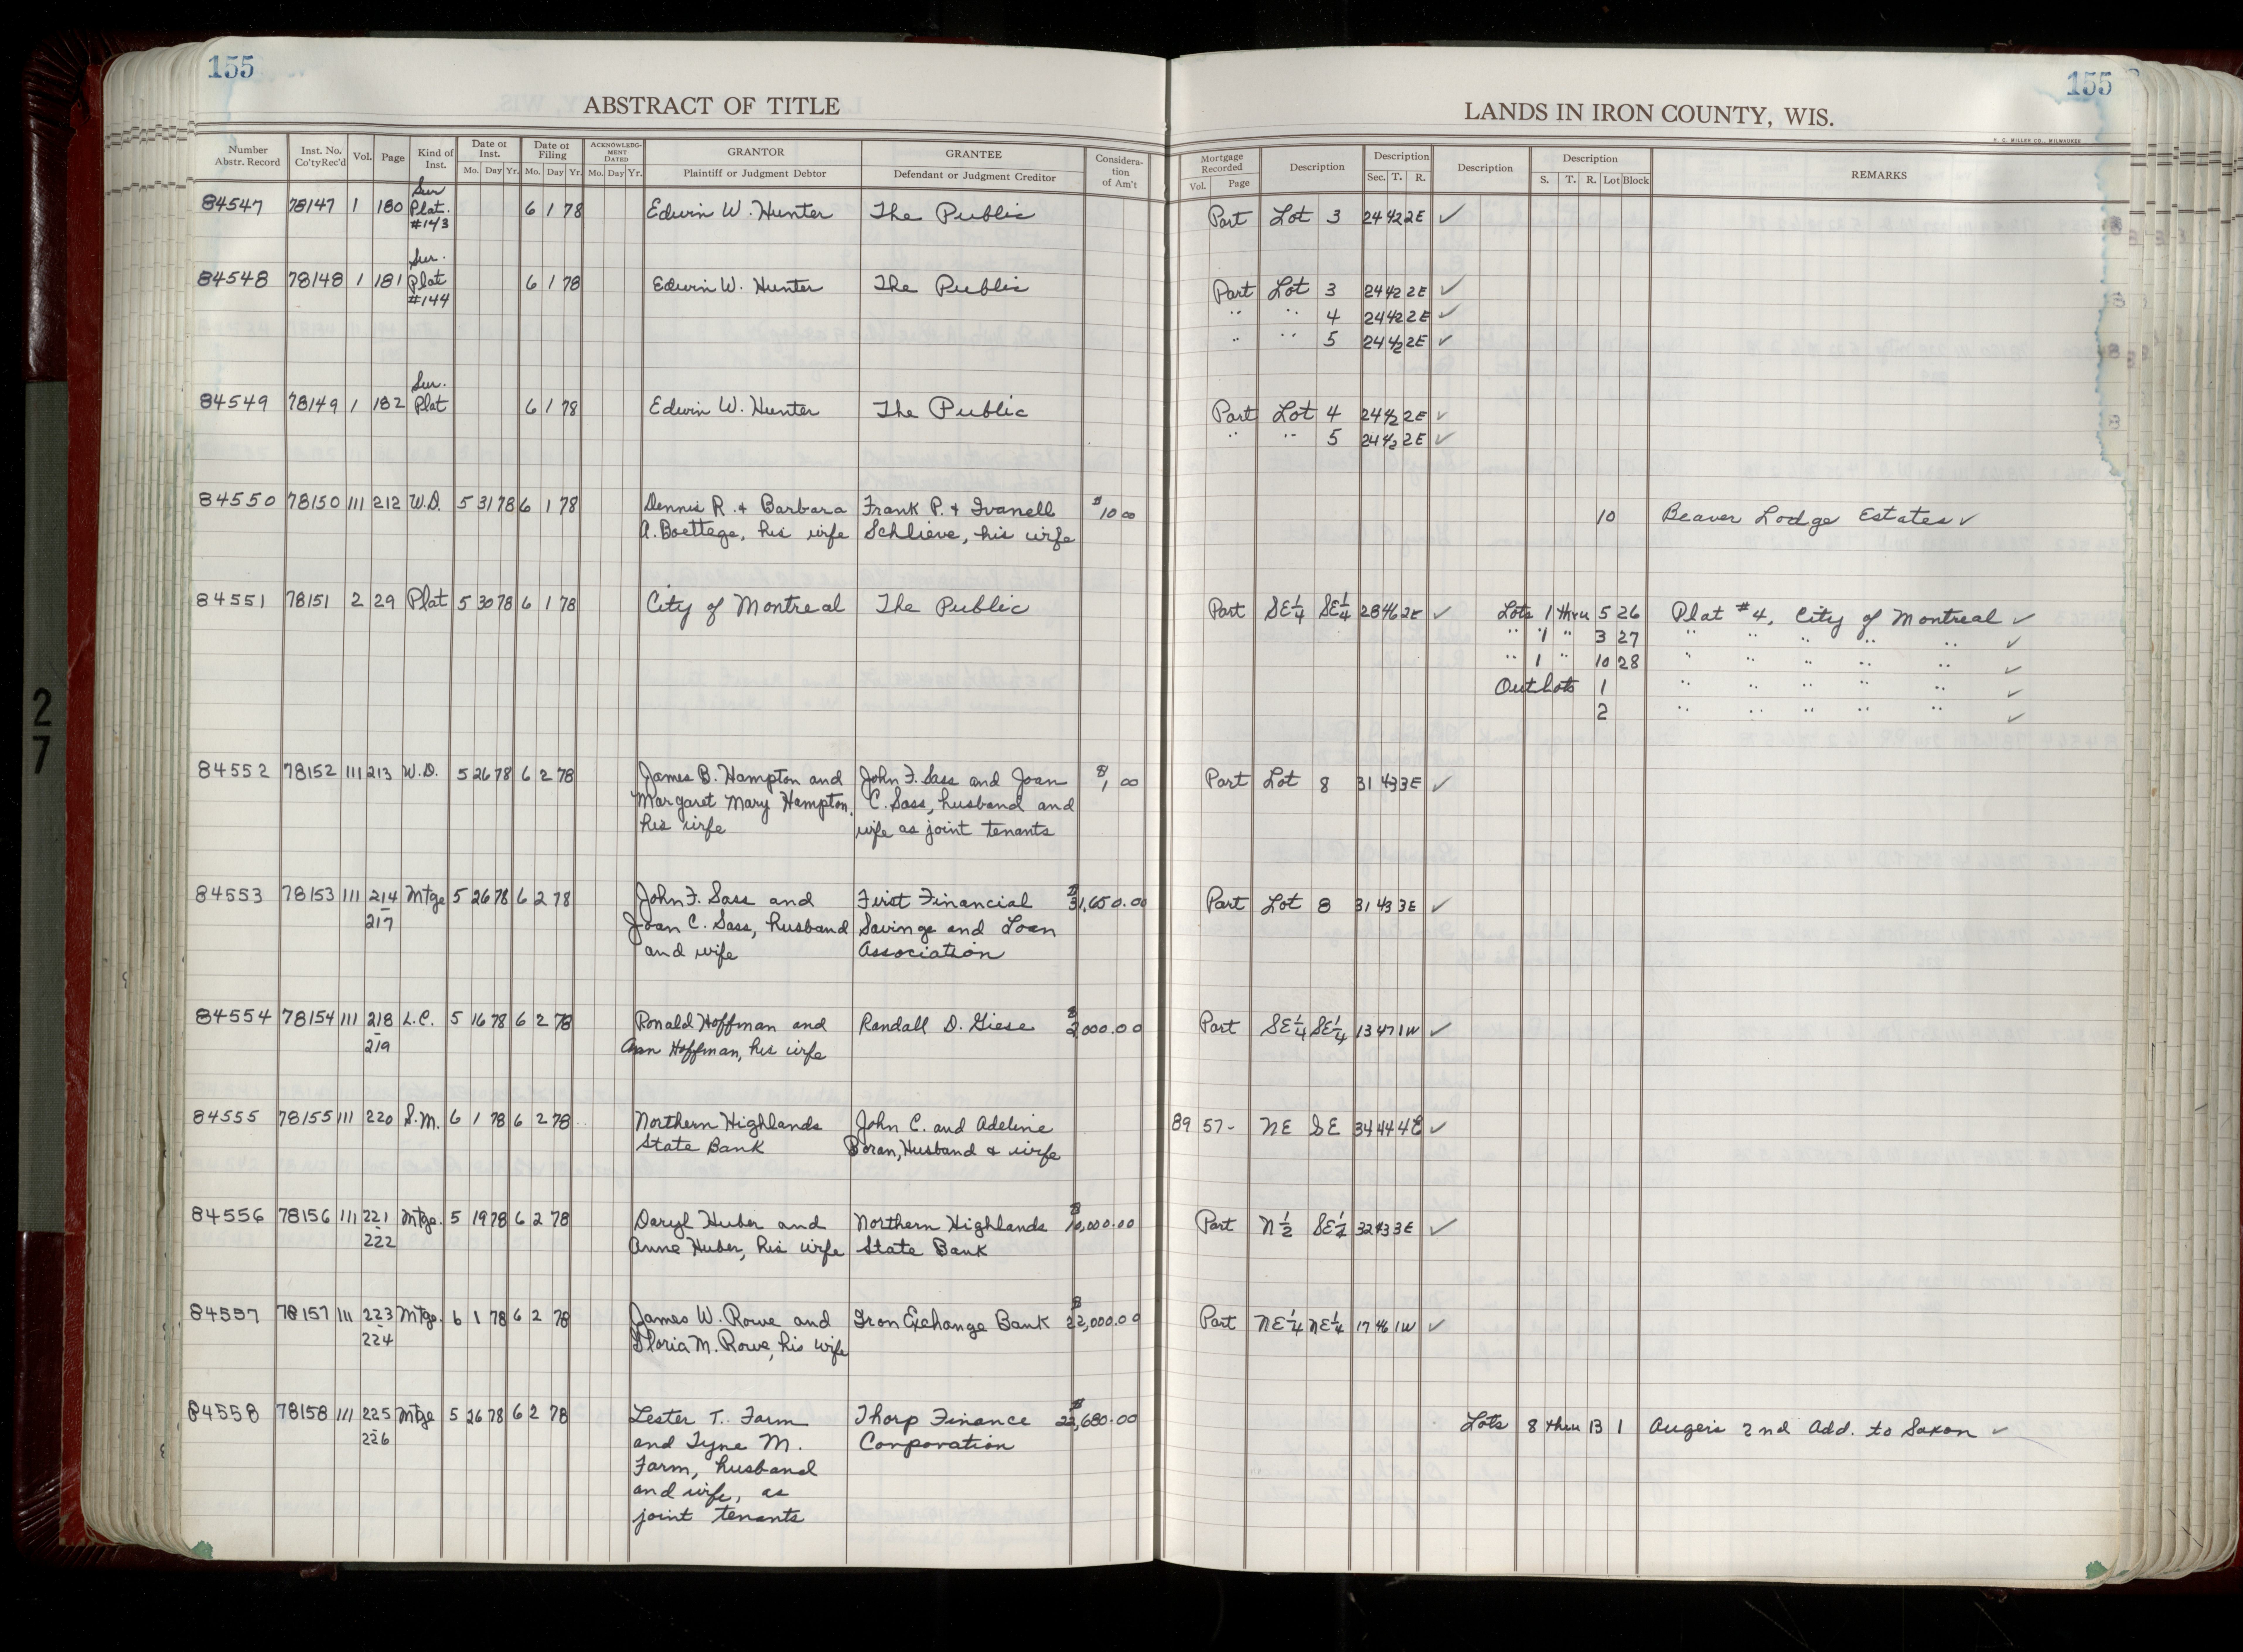 155
155
ABSTRACT OF TITLE
LANDS IN IRON COUNTY, WIS.
H. C. MILLER CO., MILWAUKEE
Number Abstr. Record | Inst. No. Co'ty Rec'd | Vol. | Page | Kind of Inst. | Date of Inst. Mo. Day Yr. | Date of Filing Mo. Day Yr. | ACKNOWLEDGMENT DATED Mo. Day Yr. | GRANTOR Plaintiff or Judgment Debtor | GRANTEE Defendant or Judgment Creditor | Consideration of Am't | Mortgage Recorded Vol. Page | Description | Description Sec. T. R. | Description | Description S. T. R. Lot Block | REMARKS
Sur
84547 78147 1 180 Plat. 6 1 78 Edwin W. Hunter The Public Part Lot 3 24 42 2E ✓
#143
Sur.
84548 78148 1 181 Plat 6 1 78 Edwin W. Hunter The Public Part Lot 3 24 42 2E ✓
#144
" " 4 24 42 2E ✓
" " 5 24 42 2E ✓
Sur.
84549 78149 1 182 Plat 6 1 78 Edwin W. Hunter The Public Part Lot 4 24 42 2E ✓
" " 5 24 42 2E ✓
84550 78150 111 212 W.D. 5 31 78 6 1 78 Dennis R. + Barbara Frank P. + Ivanell $10 00 10 Beaver Lodge Estates ✓
A. Boettege, his wife Schlieve, his wife
84551 78151 2 29 Plat 5 30 78 6 1 78 City of Montreal The Public Part SE¼ SE¼ 28 46 2E ✓ Lots 1 thru 5 26 Plat #4, City of Montreal ✓
" 1 " 3 27 " " " " " ✓
" 1 " 10 28 " " " " " ✓
Outlots 1 " " " " " ✓
2 " " " " " ✓
84552 78152 111 213 W.D. 5 26 78 6 2 78 James B. Hampton and John F. Sass and Joan $1 00 Part Lot 8 31 43 3E ✓
Margaret Mary Hampton, C. Sass, husband and
his wife wife as joint tenants
84553 78153 111 214 Mtge 5 26 78 6 2 78 John F. Sass and First Financial $31,650.00 Part Lot 8 31 43 3E ✓
- 217 Joan C. Sass, husband Savings and Loan
and wife Association
84554 78154 111 218 L.C. 5 16 78 6 2 78 Ronald Hoffman and Randall D. Giese $2,000.00 Part SE¼ SE¼ 13 47 1W ✓
- 219 Ann Hoffman, his wife
84555 78155 111 220 S.M. 6 1 78 6 2 78 Northern Highlands John C. and Adeline 89 57- NE SE 34 44 4E ✓
State Bank Boran, Husband & wife
84556 78156 111 221 Mtge. 5 19 78 6 2 78 Daryl Huber and Northern Highlands $10,000.00 Part N½ SE¼ 32 43 3E ✓
- 222 Anne Huber, his wife State Bank
84557 78157 111 223 Mtge. 6 1 78 6 2 78 James W. Rowe and Iron Exchange Bank $22,000.00 Part NE¼ NE¼ 17 46 1W ✓
- 224 Gloria M. Rowe, his wife
84558 78158 111 225 Mtge 5 26 78 6 2 78 Lester T. Farm Thorp Finance $22,680.00 Lots 8 thru 13 1 Auger's 2nd Add. to Saxon ✓
- 226 and Tyne M. Corporation
Farm, husband
and wife, as
joint tenants
27